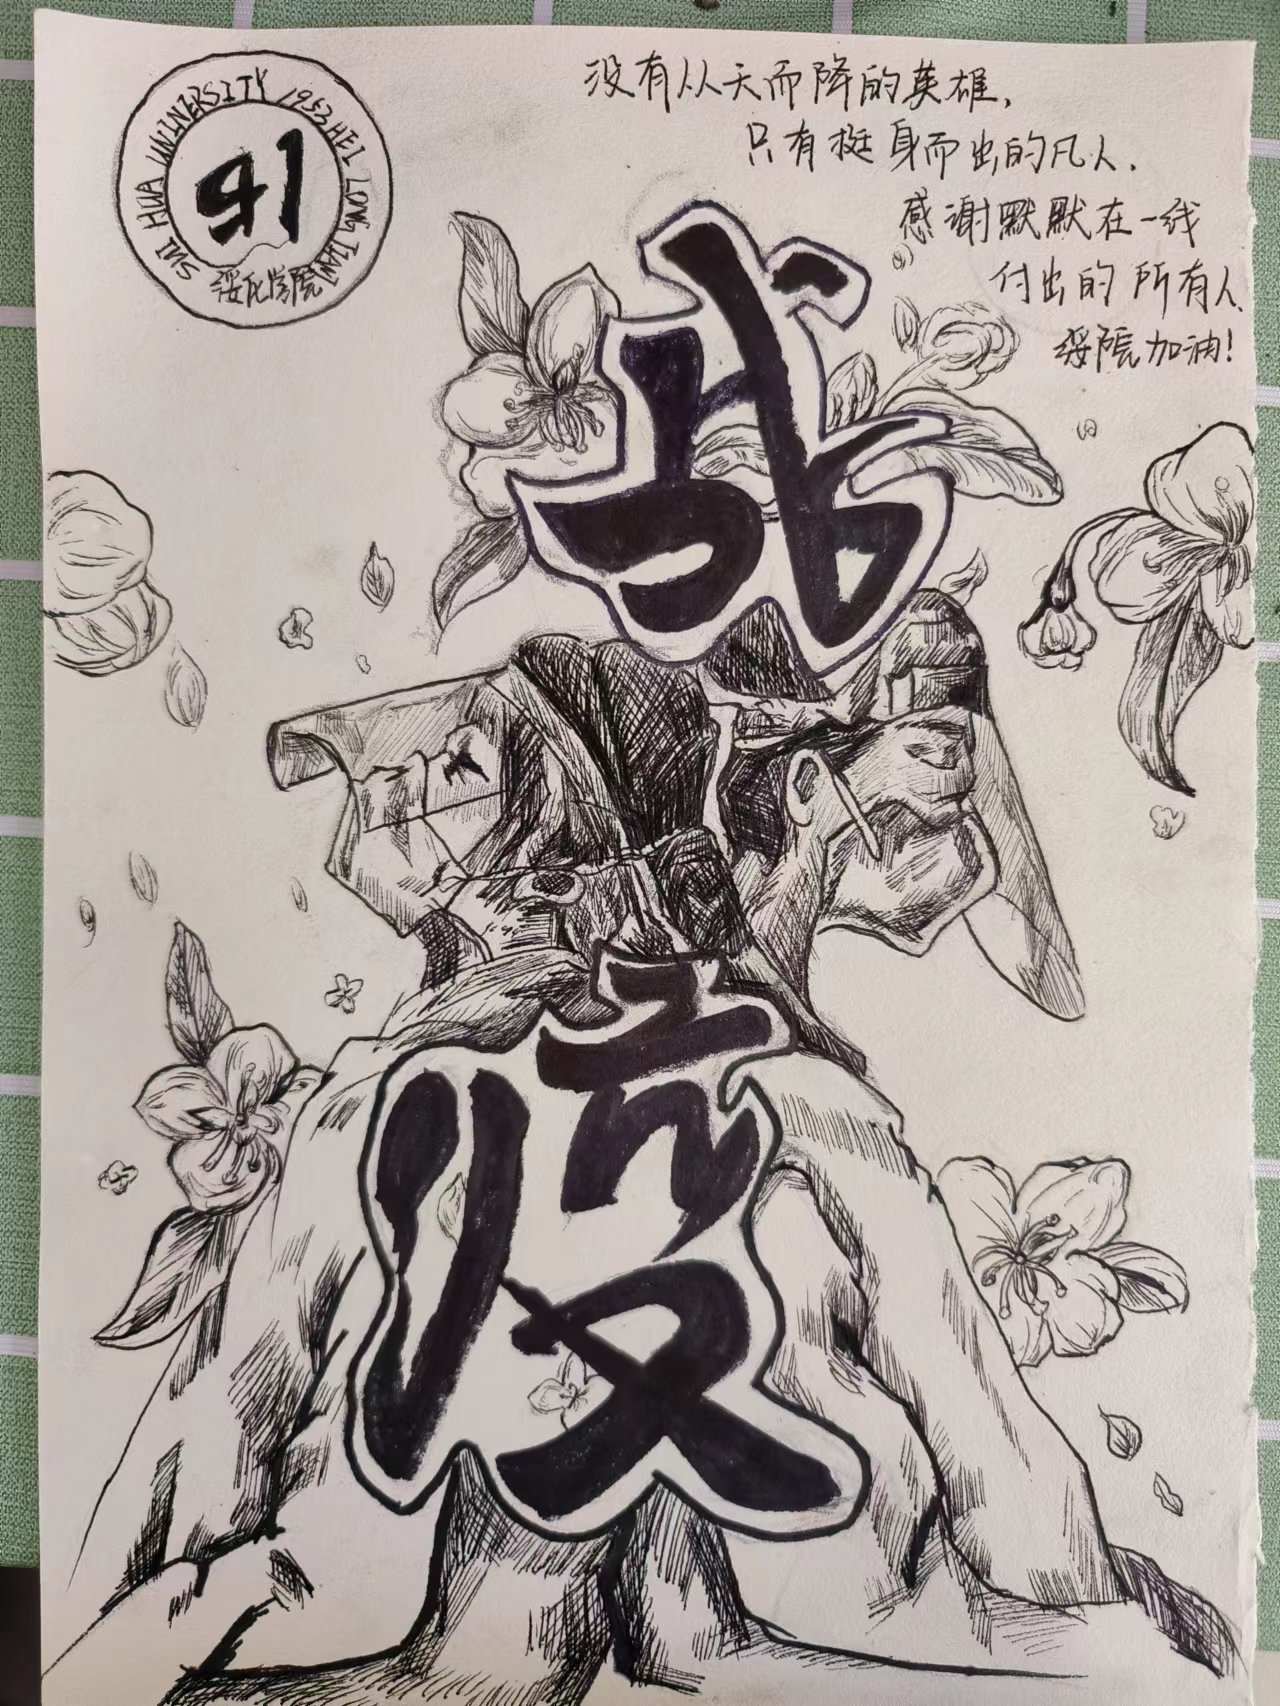 SUI HUA UNINERSITY 1953 HEI LONG JIANG
绥化学院
没有从天而降的英雄，
只有挺身而出的凡人．
感谢默默在一线
付出的所有人．
绥院加油！
战
疫